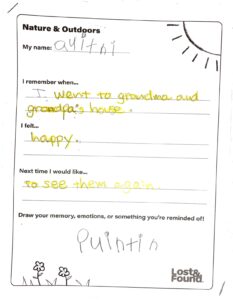 Nature & Outdoors
My name: quitni
I remember when...
I went to grandma and
grandpa's house.
I felt...
happy.
Next time I would like...
to see them again.
Draw your memory, emotions, or something you're reminded of!
Quintin
Lost&
Found.